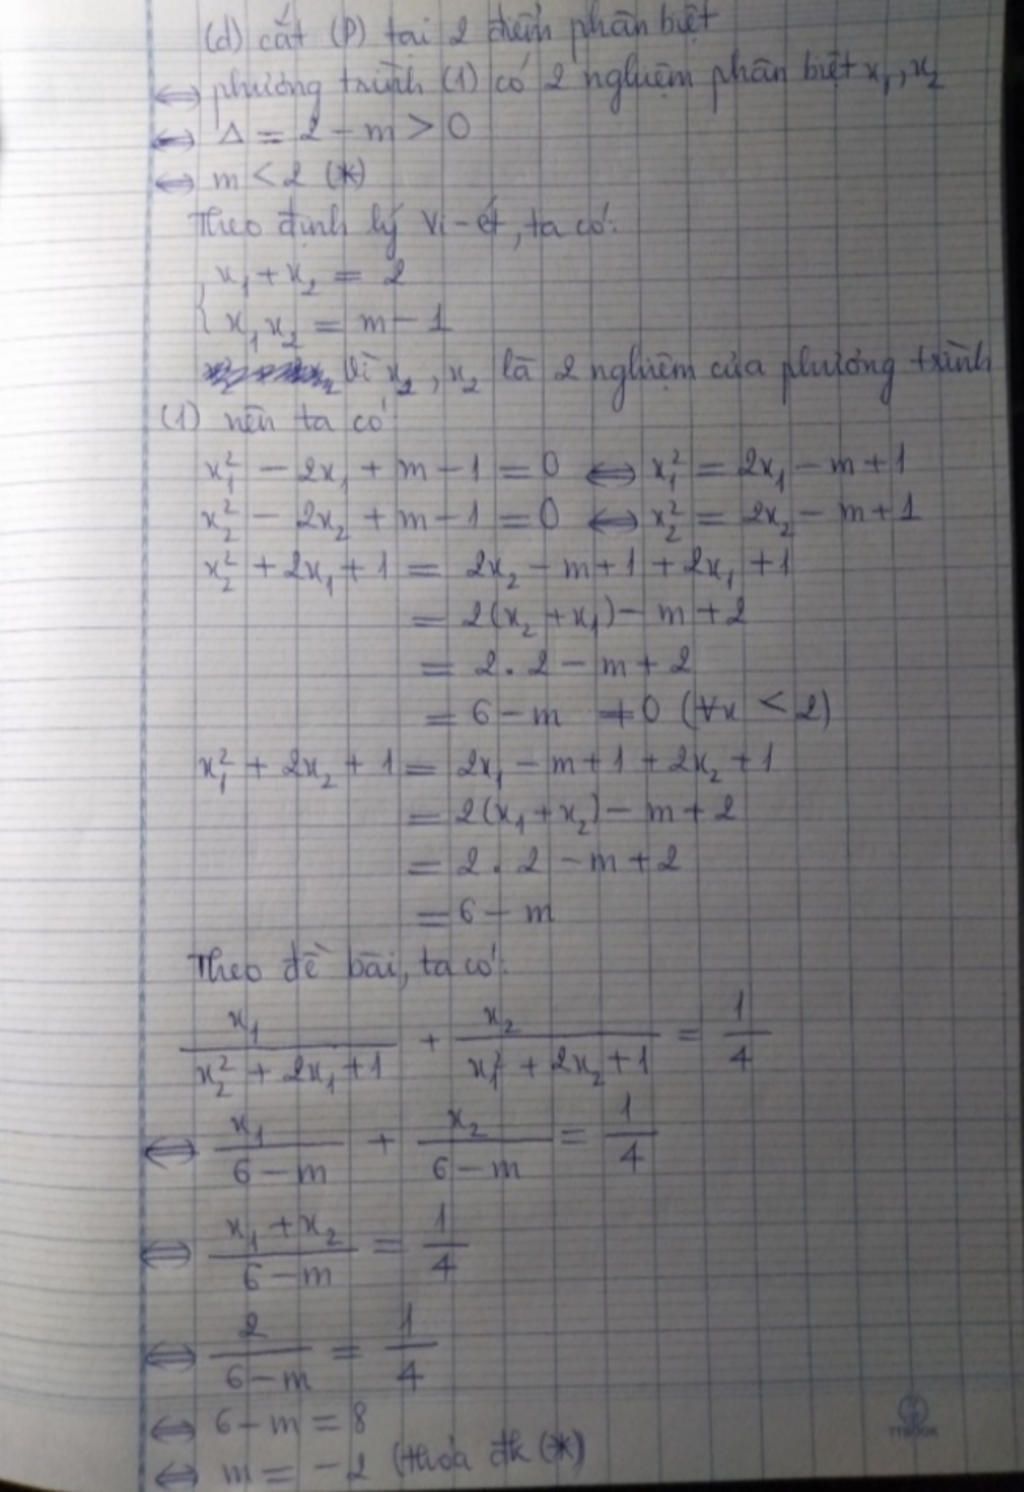 (d) cắt (P) tại 2 điểm phân biệt
⇔ phương trình (1) có 2 nghiệm phân biệt x₁, x₂
⇔ Δ = 2 - m > 0
⇔ m < 2 (*)
Theo định lý Vi-ét, ta có:
{ x₁ + x₂ = 2
x₁x₂ = m - 1
Vì x₂, x₂ là 2 nghiệm của phương trình
(1) nên ta có
x₁² - 2x₁ + m - 1 = 0 ⇔ x₁² = 2x₁ - m + 1
x₂² - 2x₂ + m - 1 = 0 ⇔ x₂² = 2x₂ - m + 1
x₂² + 2x₁ + 1 = 2x₂ - m + 1 + 2x₁ + 1
= 2(x₂ + x₁) - m + 2
= 2 . 2 - m + 2
= 6 - m ≠ 0 (∀x < 2)
x₁² + 2x₂ + 1 = 2x₁ - m + 1 + 2x₂ + 1
= 2(x₁ + x₂) - m + 2
= 2 . 2 - m + 2
= 6 - m
Theo đề bài, ta có:
x₁/(x₂² + 2x₁ + 1) + x₂/(x₁² + 2x₂ + 1) = 1/4
⇔ x₁/(6 - m) + x₂/(6 - m) = 1/4
⇔ (x₁ + x₂)/(6 - m) = 1/4
⇔ 2/(6 - m) = 1/4
⇔ 6 - m = 8
⇔ m = -2 (thỏa đk (*)